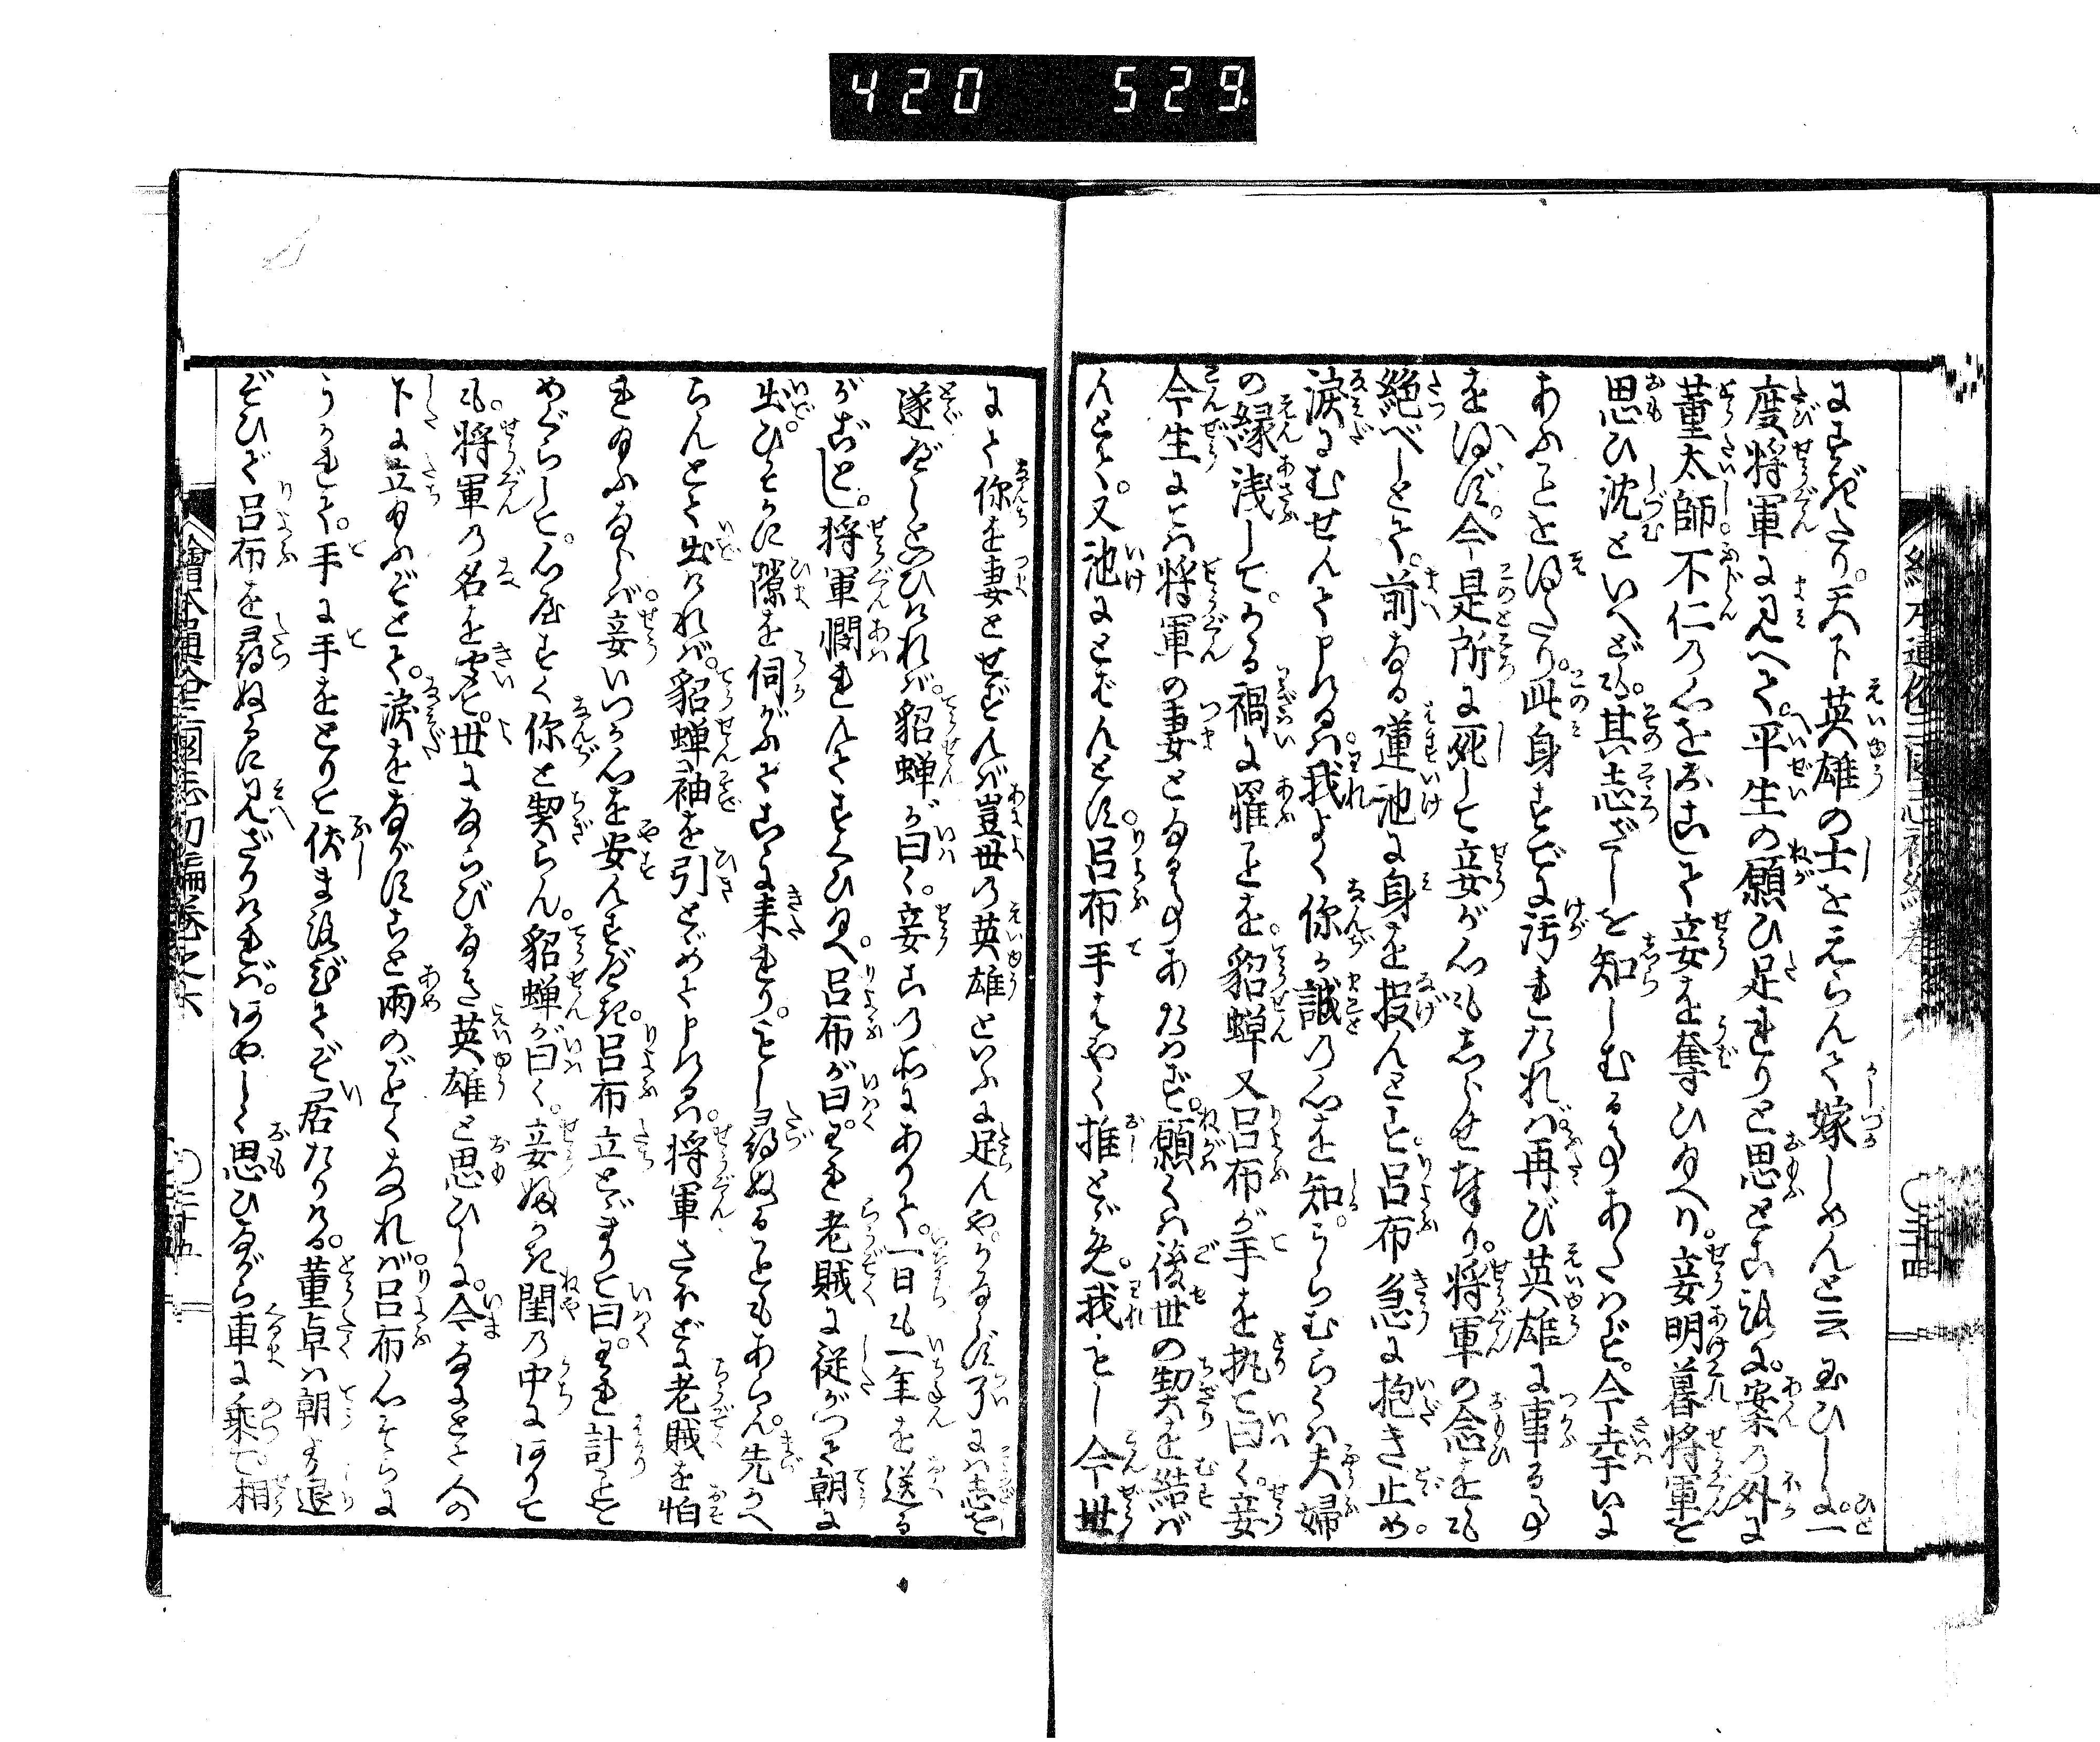 420 529
にすぎたり。天下英雄の士をえらんで嫁しめんと云玉ひしに。一
度将軍に見へて。平生の願ひ足れりと思ところに。案の外に
董太師。不仁の心をおこして妾を奪ひ玉へり。妾明暮将軍を
思ひ沈といへども。其志ざしを知しむる事あたはず。今幸ひに
あふことを得たり。此身すでに汚れたれば再び英雄に事る事
を得ず。今是所に死して妾が心もしらせ奉り。将軍の念をも
絶べしとて。前なる蓮池に身を投んとす。呂布急に抱き止め。
涙にむせんで申けるは。我よく你が誠の心を知。うらむらくは夫婦
の縁浅して。かゝる禍に罹ことを。貂蝉又呂布が手を執て曰く。妾
今生にては将軍の妻となる事あたはず。願くは後世の契を結ば
んとて。又池にとばんとす。呂布手ばやく推とゞめ。我もし今世
にて你を妻とせずんば豈世の英雄といふに足んや。かならず了には志を
遂べしといひければ。貂蝉が曰く。妾この所にありて。一日も一年を送る
がごとし。将軍憫れんですくひ玉へ。呂布が曰。われ老賊に従がつて朝に
出。ひそかに隙を伺がふてこゝに来れり。もし尋ぬることもあらん。先かへ
らんとて出ければ。貂蝉袖を引とゞめて申けるは。将軍さほどに老賊を怕
れ玉ふならば。妾いつか心を安んずべき。呂布立とゞまりて曰。われ計ことを
めぐらして。心やすく你と契らん。貂蝉が曰く。妾ふかき閨の中にありて
も。将軍の名を聞て。世にならびなき英雄と思ひしに。今なにとて人の
下に立玉ふぞとて。涙をながすこと雨のごとくなれば。呂布心そらに
うかれて。手に手をとりて伏まろびてぞ居たりける。董卓は朝より退
ぞひて呂布を尋ぬるに見へざりければ。あやしく思ひながら車に乗て。相
繪本通俗三國志初編巻之六